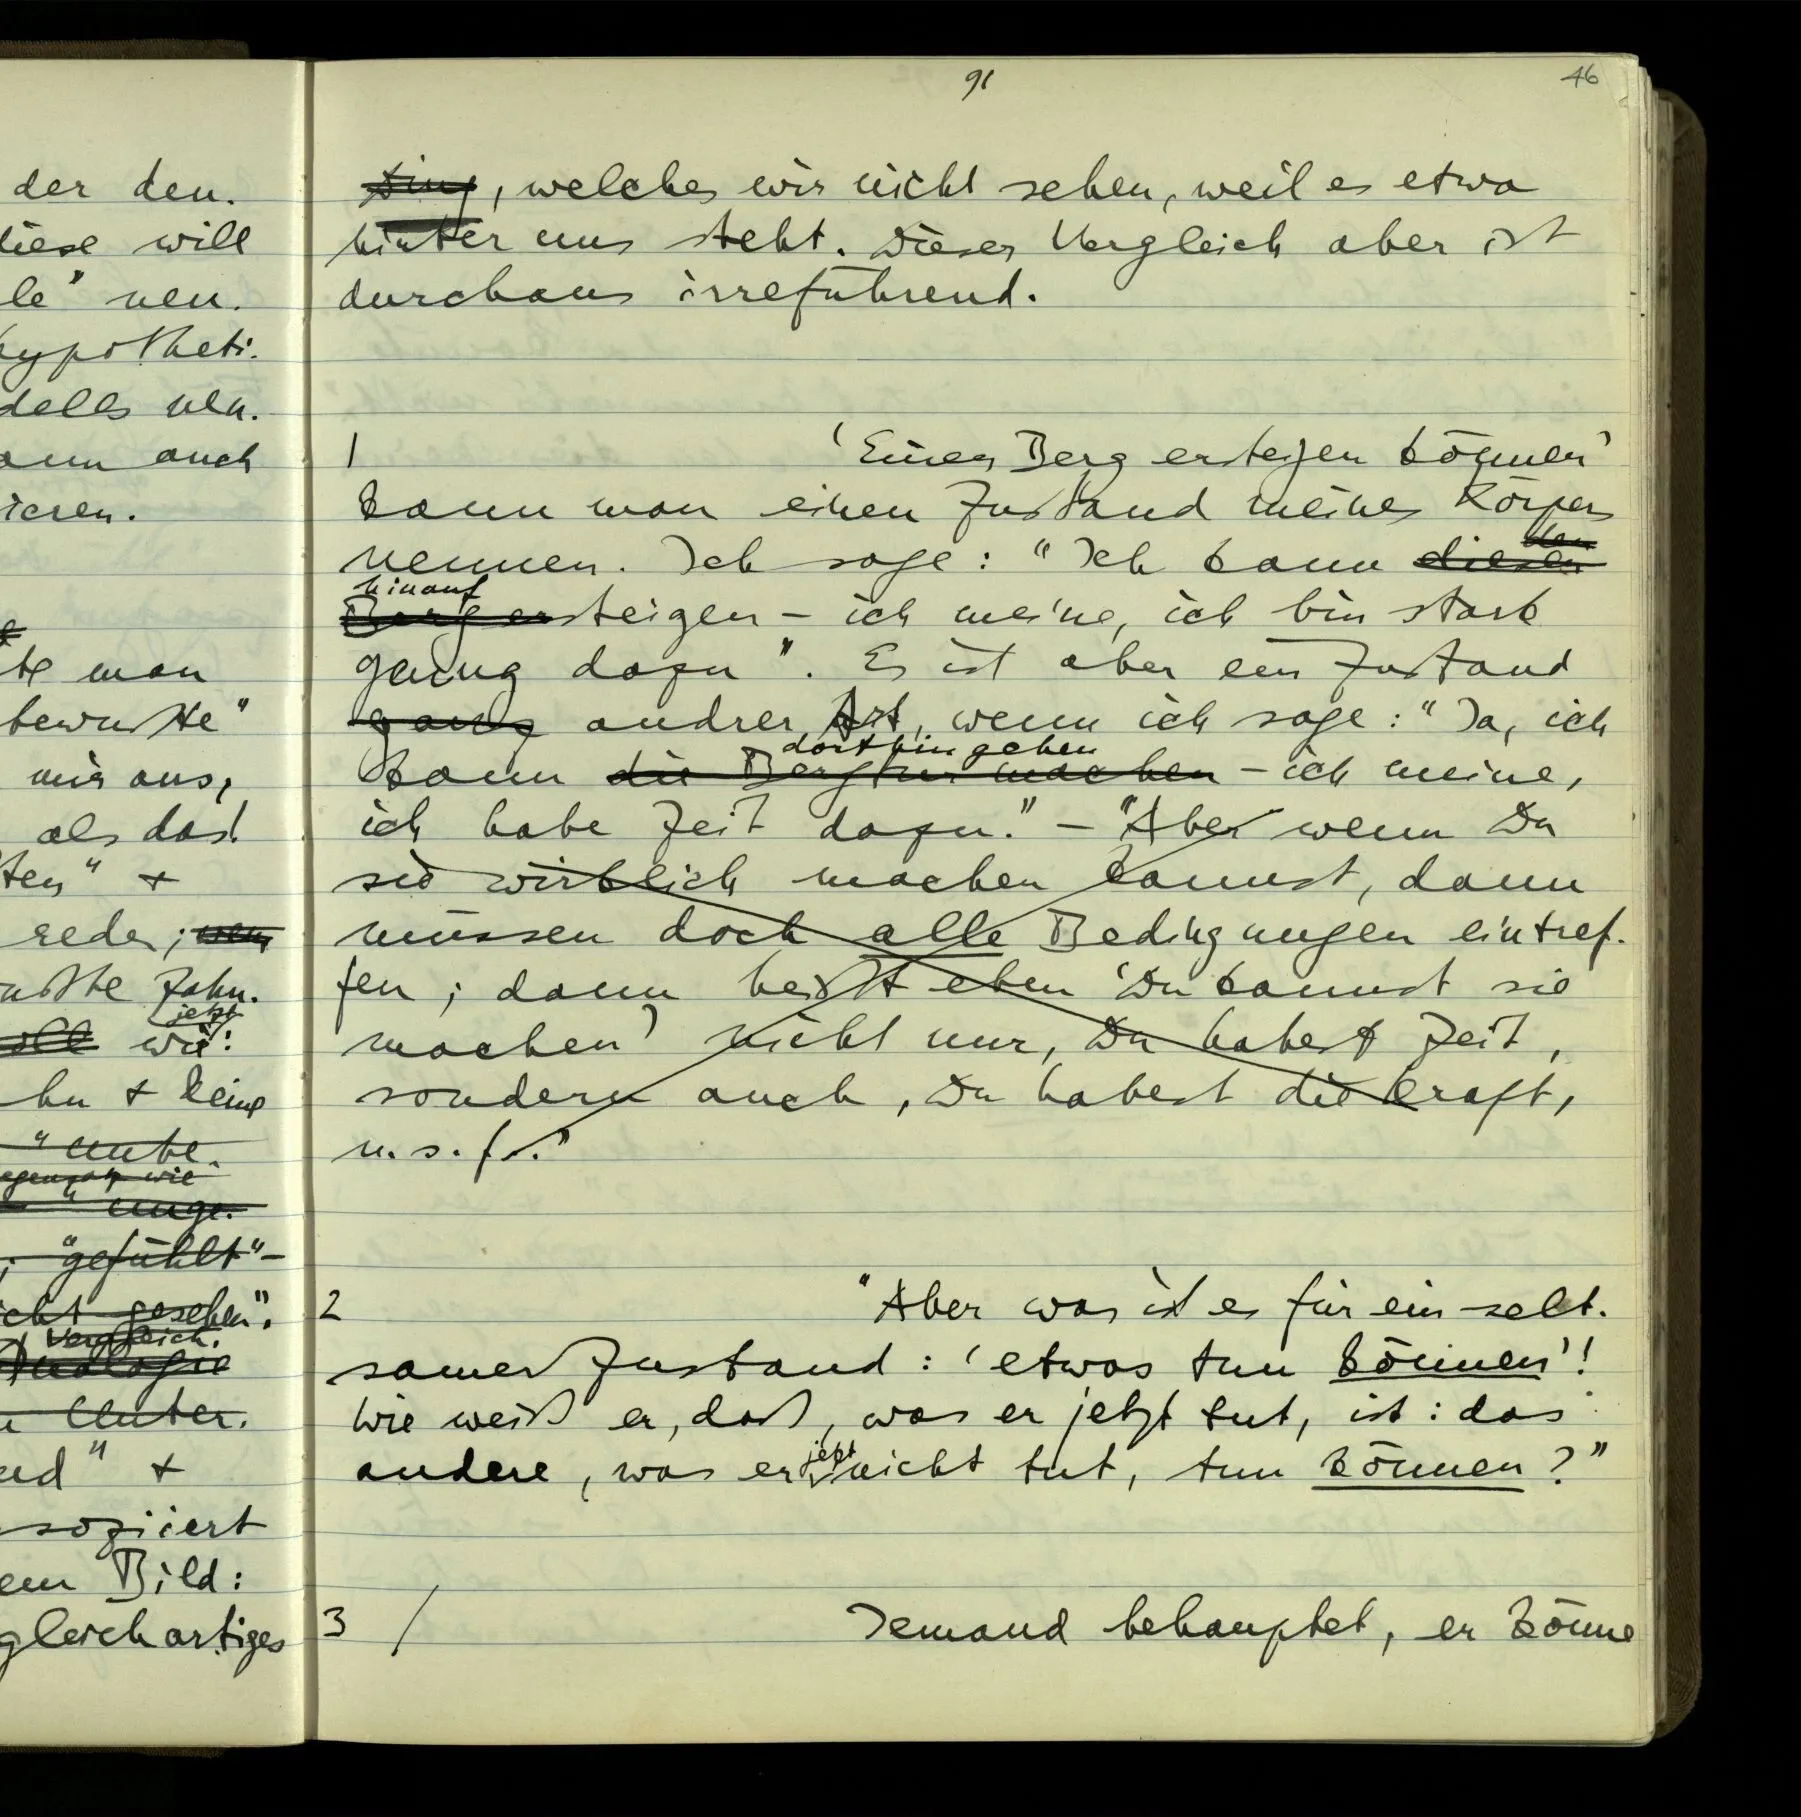 91
46
der den.
diese will
le" nen.
hypotheti.
dells nen.
ann auch
ieren.
te man
bewußte"
mir aus,
als das!
ten" +
rede; wenn
ußte Zahn.
jetzt
soll wie:
hn + keine
"unbe.
egensatz wie
" unge.
; "gefühlt" –
icht gesehen".
Vergleich.
Analogie
n Unter.
nd" +
soziiert
em Bild:
gleichartiges
Ding, welches wir nicht sehen, weil es etwa
hinter uns steht. Dieser Vergleich aber ist
durchaus irreführend.
1 'Einen Berg ersteigen können'
kann man einen Zustand meines Körpers
nennen. Ich sage: "Ich kann diesen
den
hinauf
Berg ersteigen – ich meine, ich bin stark
genug dazu". Es ist aber ein Zustand
ganz andrer Art, wenn ich sage: "Ja, ich
dorthin gehen
kann die Bergtur machen – ich meine,
ich habe Zeit dazu." – "Aber wenn Du
sie wirklich machen kannst, dann
müssen doch alle Bedingungen eintref-
fen; dann heißt eben 'Du kannst sie
machen' nicht nur, Du habest Zeit,
sondern auch, Du habest die Kraft,
u.s.f.."
2 "Aber was ist es für ein selt-
samer Zustand: 'etwas tun können'!
Wie weiß er, daß, was er jetzt tut, ist: das
jetzt
andere, was er nicht tut, tun können?"
3 / Jemand behauptet, er könne